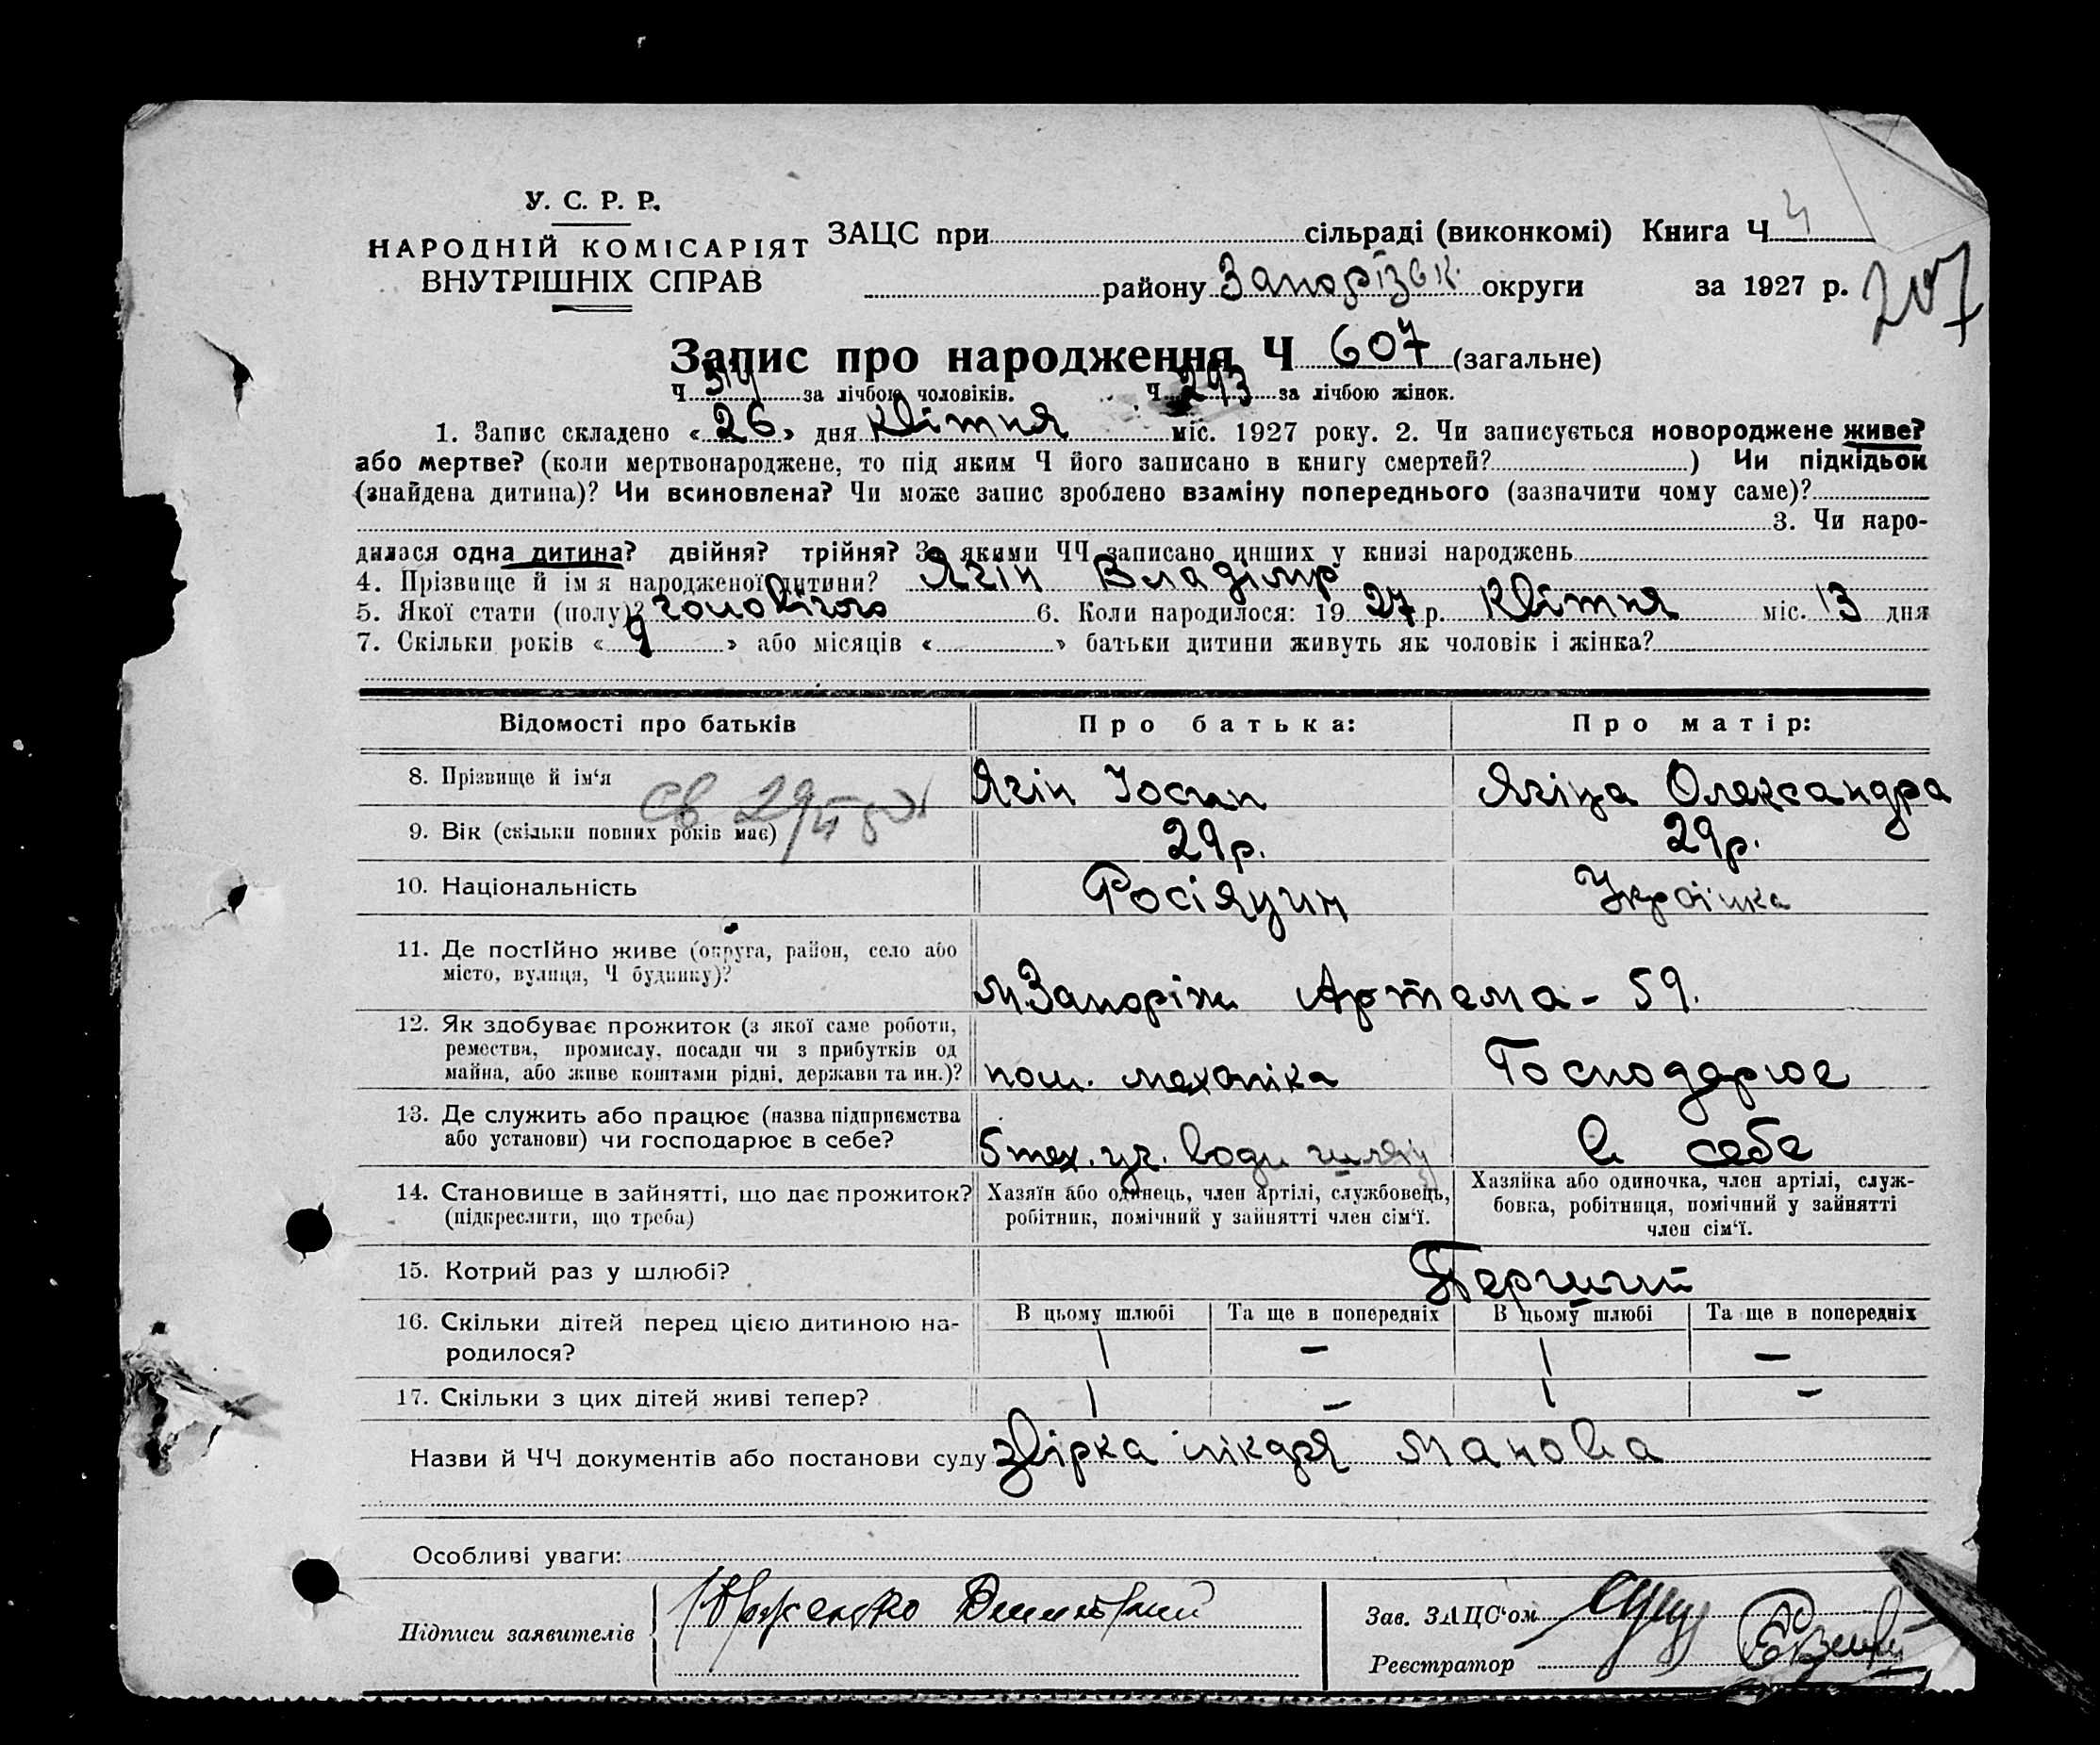 У. С. Р. Р.
НАРОДНІЙ КОМІСАРІЯТ
ВНУТРІШНІХ СПРАВ
ЗАЦС при сільраді (виконкомі) Книга Ч 4
району Запорізьк. округи за 1927 р.
207
Запис про народження Ч 607 (загальне)
Ч 314 за лічбою чоловіків. Ч 293 за лічбою жінок.
1. Запис складено «26» дня квітня міс. 1927 року. 2. Чи записується новороджене живе?
або мертве? (коли мертвонароджене, то під яким Ч його записано в книгу смертей? ) Чи підкідьок
(знайдена дитина)? Чи всиновлена? Чи може запис зроблено взаміну попереднього (зазначити чому саме)?
3. Чи наро-
дилася одна дитина? двійня? трійня? За якими ЧЧ записано инших у книзі народжень
4. Прізвище й ім я народженої дитини? Ягін Владімір
5. Якої стати (полу)? чоловічого 6. Коли народилося: 1927 р. квітня міс. 13 дня
7. Скільки років «9» або місяців « » батьки дитини живуть як чоловік і жінка?
Відомості про батьків Про батька: Про матір:
8. Прізвище й ім‘я Ягін Іосип Ягіна Олександра
9. Вік (скільки повних років має) 29 р. 29 р.
10. Національність Росіянин Українка
11. Де постійно живе (округа, район, село або
місто, вулиця, Ч будинку)? м Запоріж Артема - 59.
12. Як здобуває прожиток (з якої саме роботи,
ремества, промислу, посади чи з прибутків од
майна, або живе коштами рідні, держави та ин.)? пом. механіка Господарює
13. Де служить або працює (назва підприємства
або установи) чи господарює в себе? 5 тех. уч. водн шляху в себе
14. Становище в зайнятті, що дає прожиток?
(підкреслити, що треба)
Хазяїн або одинець, член артілі, службовець,
робітник, помічний у зайнятті член сім‘ї.
Хазяйка або одиночка, член артілі, служ-
бовка, робітниця, помічний у зайнятті
член сім‘ї.
15. Котрий раз у шлюбі? Перший
В цьому шлюбі Та ще в попередніх В цьому шлюбі Та ще в попередніх
16. Скільки дітей перед цією дитиною на-
родилося? 1 — 1 —
17. Скільки з цих дітей живі тепер? 1 — 1 —
Назви й ЧЧ документів або постанови суду звірка лікаря Манова
Особливі уваги:
Підписи заявителів
Зав. ЗАЦС‘ом
Реєстратор